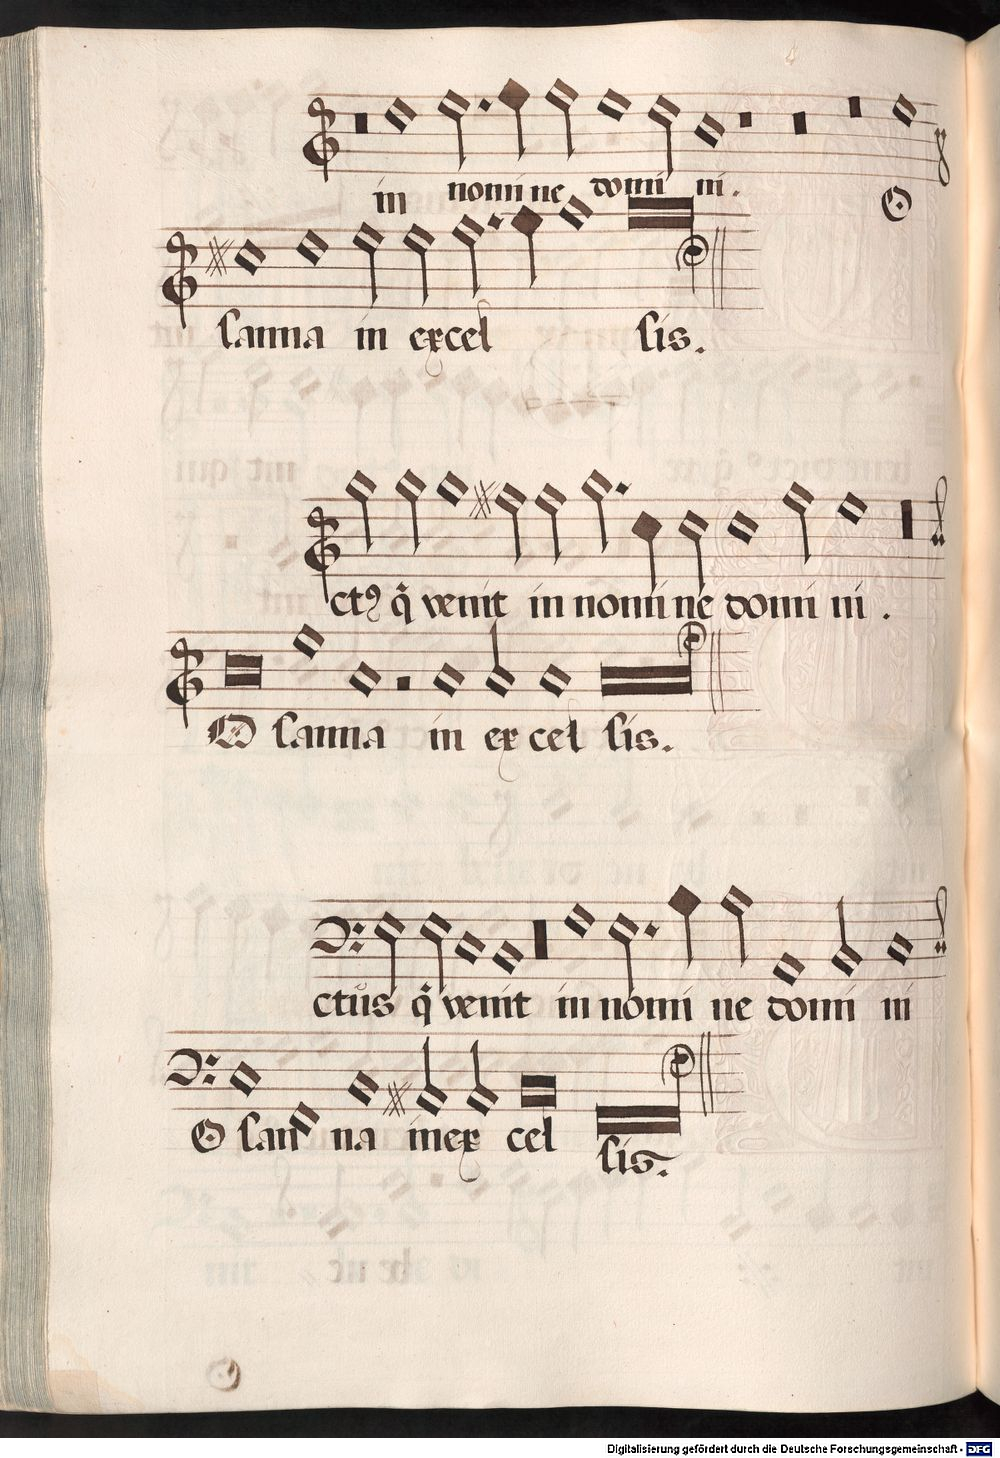 in nomi ne domi ni. O
sanna in excel sis.
ctꝰ q̃ venit in nomi ne domi ni.
O sanna in ex cel sis.
ctus q̃ venit in nomi ne domi ni
O san na in ex cel sis.
Digitalisierung gefördert durch die Deutsche Forschungsgemeinschaft - DFG